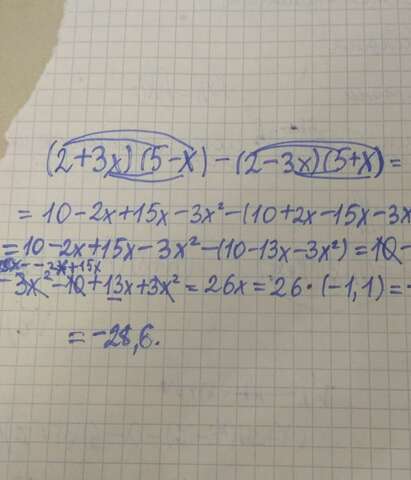 (2+3x)(5-x)-(2-3x)(5+x)=
=10-2x+15x-3x²-(10+2x-15x-3x
=10-2x+15x-3x²-(10-13x-3x²)=10-
-2x+15x
-3x²-10+13x+3x²=26x=26·(-1,1)=-
=-28,6.